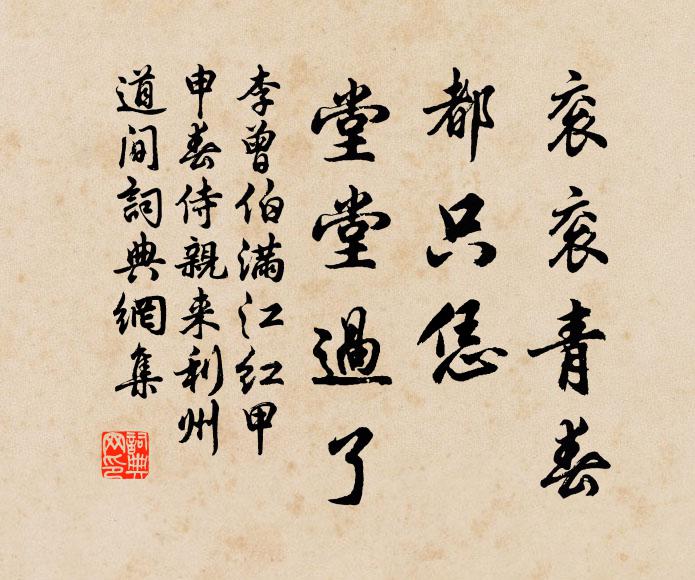 衮衮青春
都只恁
堂堂過了
李曾伯滿江红甲
申春侍親来利州
道间詞典網集
詞典
网印